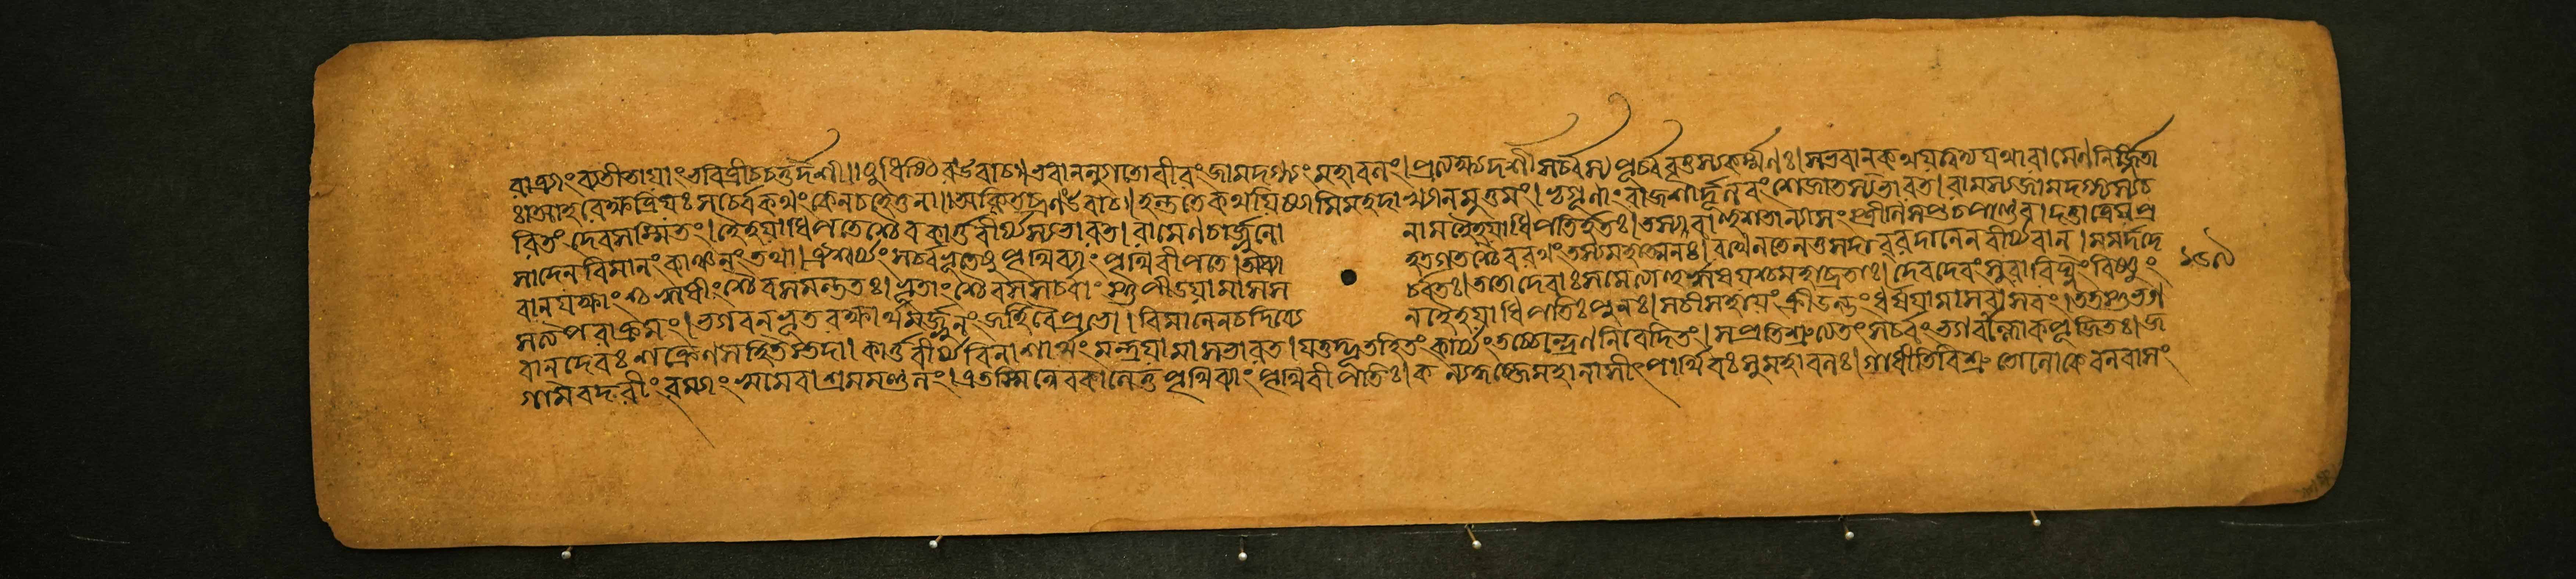 রাত্র্যাং ব্যতীতাযাং ভবিত্রীচচতুর্দশী॥ যুধিষ্ঠির উবাচ॥ ভবাননুগতোবীরং জামদগ্ন্যং মহাবলং। প্রত্যক্ষদর্শী সর্ব্বস্য পূর্ব্ববৃত্তস্যকর্ম্মণঃ। সভবানকথযত্বিত্থ যথারামেণনির্জিতা
ঃ। আহবেক্ষত্রিযাঃ সর্ব্বেকথং কেনচহেতুনা॥ অকৃতব্রণউবাচ। হন্ততেকথযিষ্যামিমহদাখ্যানমুত্তমং। ভৃগূণাং রাজশার্দ্দূলবংশেজাতস্যভারত। রামস্যজামদগ্ন্যস্যচ
রিতং দেবসম্মিতং। হৈহযাধিপতেশ্চৈবকার্ত্তবীর্য্যস্যভারত। রামেণচার্জ্জুনো নামহৈহযাধিপতির্হতঃ। তস্যবাহুশতান্যাসংস্ত্রীণিসপ্তচপাণ্ডব। দত্তাত্রেযপ্র
সাদেনবিমানং কাঞ্চনং তথা। ঐশ্বর্য্যং সর্ব্বভূতেষুপৃথিব্যাং পৃথিবীপতে। অব্যা হতগতিশ্চৈবরথং তস্যমহাত্মনঃ। রথেনতেনতুসদাবরদানেনবীর্য্যবান। মমর্দদে ১৫৯
বানযক্ষাংশ্চঋষীংশ্চৈবসমন্ততঃ। ভূতাংশ্চৈবসসর্ব্বাংস্তুপীডযামাসস র্ব্বতঃ। ততোদেবাঃসমেত্যাহুঋষযশ্চমহাব্রতাঃ। দেবদেবং সুরারিঘ্নং বিষ্ণুং
সত্যপরাক্রমং। ভগবনভূতরক্ষার্থমর্জ্জুনং জহিবৈপ্রভো। বিমানেনচদিব্যে নহৈহযাধিপতিঃপ্রভুঃ। শচীসহাযং ক্রীডন্তং ধর্ষযামাসবাসবং। ততস্তুভগ
বানদেবঃ শক্রেণসহিতস্তদা। কার্ত্তবীর্য্যবিনাশার্থং মন্ত্রযামাসভারত। যত্তদ্ভূতহিতং কার্য্যং তচ্চেন্দ্রেণনিবেদিতং। সপ্রতিশ্রুত্যতৎ সর্ব্বং ভগবাঁল্লোকপূজিতঃ। জ
গামবদরীং রম্যাং স্বামেবাশ্রমমণ্ডলং। এতস্মিন্নেবকালেতুপৃথিব্যাং পৃথিবীপতিঃ। কান্যকুব্জেমহানাসীৎ পার্থিবঃ সুমহাবলঃ। গাধীতিবিশ্রুতোলোকেবনবাসং